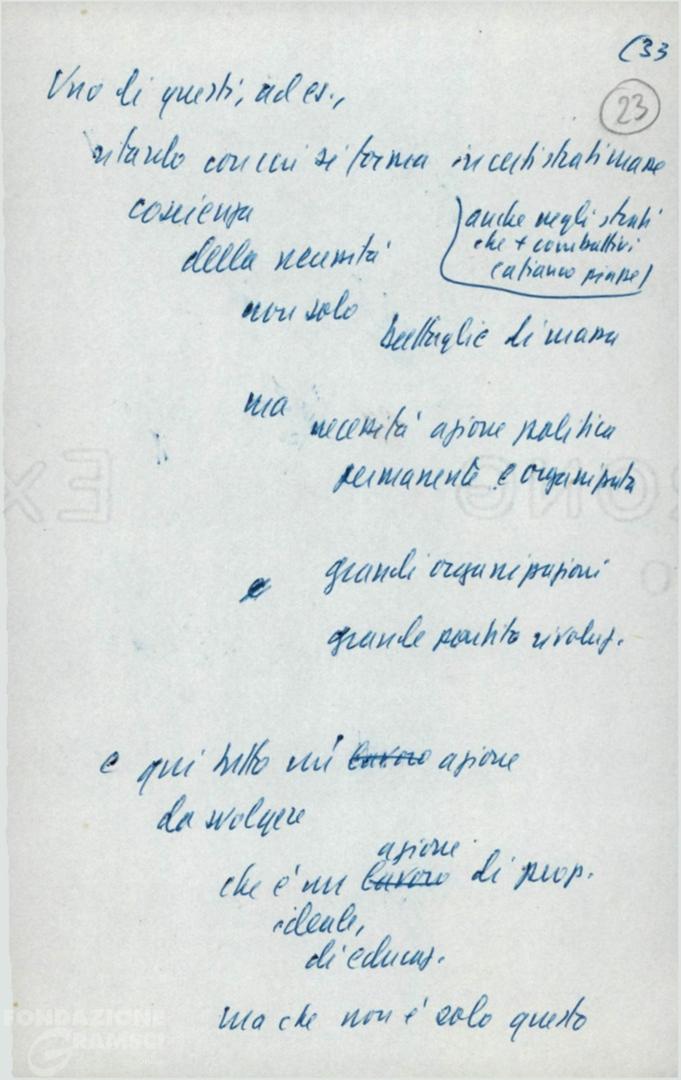 (33
23
Uno di questi, ad es.,
ritardo con cui si forma in certi strati masse
coscienza
(anche negli strati
che + combattivi
in piazza)
della necessità
non solo
battaglie di massa
ma
necessità azione politica
permanente e organizzata
e
grandi organizzazioni
grande partito rivoluz.
e qui tutto un' lavoro azione
da svolgere
azione
che è un lavoro di prop.
ideale,
di educaz.
ma che non è solo questo
FONDAZIONE
GRAMSCI